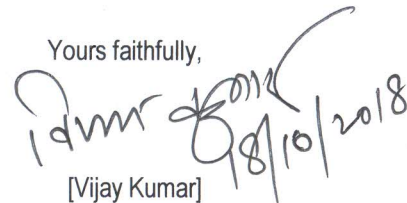 Yours faithfully,
विजय कुमार
18/10/2018
[Vijay Kumar]